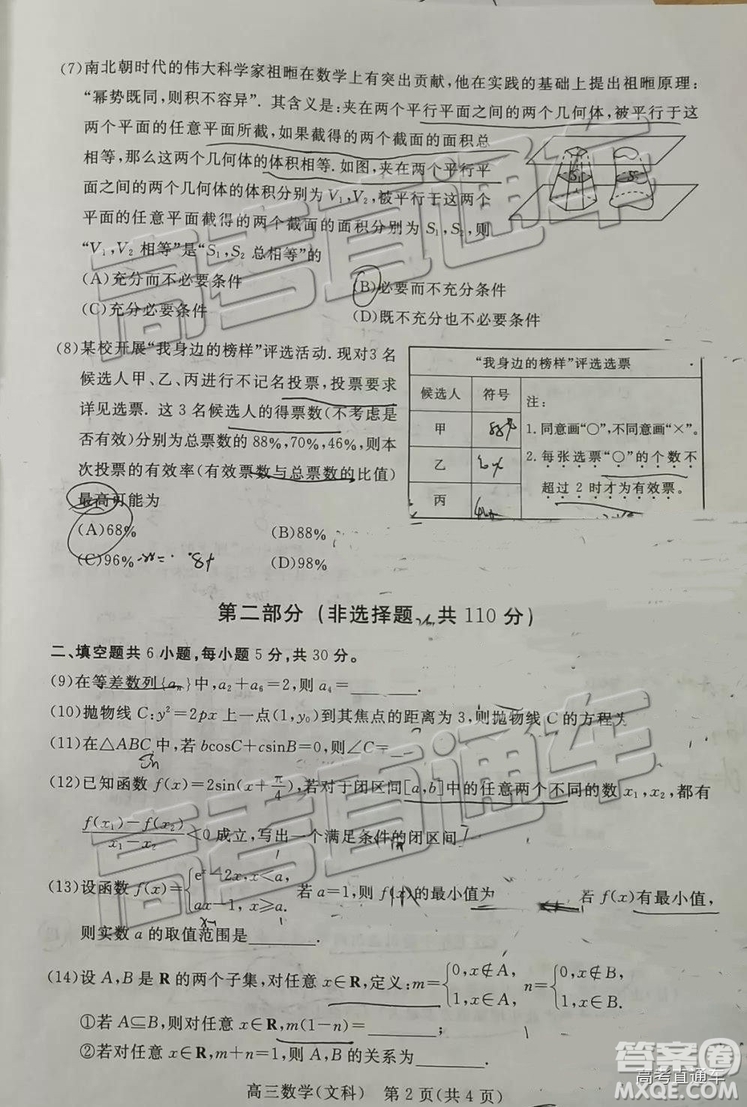 (7)南北朝时代的伟大科学家祖暅在数学上有突出贡献,他在实践的基础上提出祖暅原理:
“幂势既同,则积不容异”. 其含义是:夹在两个平行平面之间的两个几何体,被平行于这
两个平面的任意平面所截,如果截得的两个截面的面积总
相等,那么这两个几何体的体积相等. 如图,夹在两个平行平
面之间的两个几何体的体积分别为 V₁,V₂,被平行于这两个
平面的任意平面截得的两个截面的面积分别为 S₁,S₂,则
“V₁,V₂ 相等”是“S₁,S₂ 总相等”的
(A)充分而不必要条件 (B)必要而不充分条件
(C)充分必要条件 (D)既不充分也不必要条件
(8)某校开展“我身边的榜样”评选活动. 现对3名
候选人甲、乙、丙进行不记名投票,投票要求
详见选票. 这 3 名候选人的得票数(不考虑是
否有效)分别为总票数的 88%,70%,46%,则本
次投票的有效率(有效票数与总票数的比值)
最高可能为
(A)68% (B)88%
(C)96% (D)98%
“我身边的榜样”评选选票
候选人 符号 注:
甲 1. 同意画“○”,不同意画“×”.
乙 2. 每张选票“○”的个数不
丙 超过 2 时才为有效票.
第二部分 (非选择题 共 110 分)
二、填空题共 6 小题,每小题 5 分,共 30 分。
(9)在等差数列{aₙ}中,a₂+a₆=2,则 a₄=______.
(10)抛物线 C:y²=2px 上一点(1,y₀)到其焦点的距离为 3,则抛物线 C 的方程为
(11)在△ABC 中,若 bcosC+csinB=0,则∠C=
(12)已知函数 f(x)=2sin(x+π/4),若对于闭区间[a,b]中的任意两个不同的数 x₁,x₂,都有
(f(x₁)-f(x₂))/(x₁-x₂)<0 成立,写出一个满足条件的闭区间
(13)设函数 f(x)={eˣ-2x,x<a, ax-1, x≥a. 若 a=1,则 f(x)的最小值为 若 f(x)有最小值,
则实数 a 的取值范围是______.
(14)设 A,B 是 R 的两个子集,对任意 x∈R,定义:m={0,x∉A, 1,x∈A, n={0,x∉B, 1,x∈B.
①若 A⊆B,则对任意 x∈R,m(1-n)=______;
②若对任意 x∈R,m+n=1,则 A,B 的关系为______.
高三数学(文科) 第 2 页(共 4 页)
答案圈
MXQE.COM
高考直通车
高考直通车
高考直通车